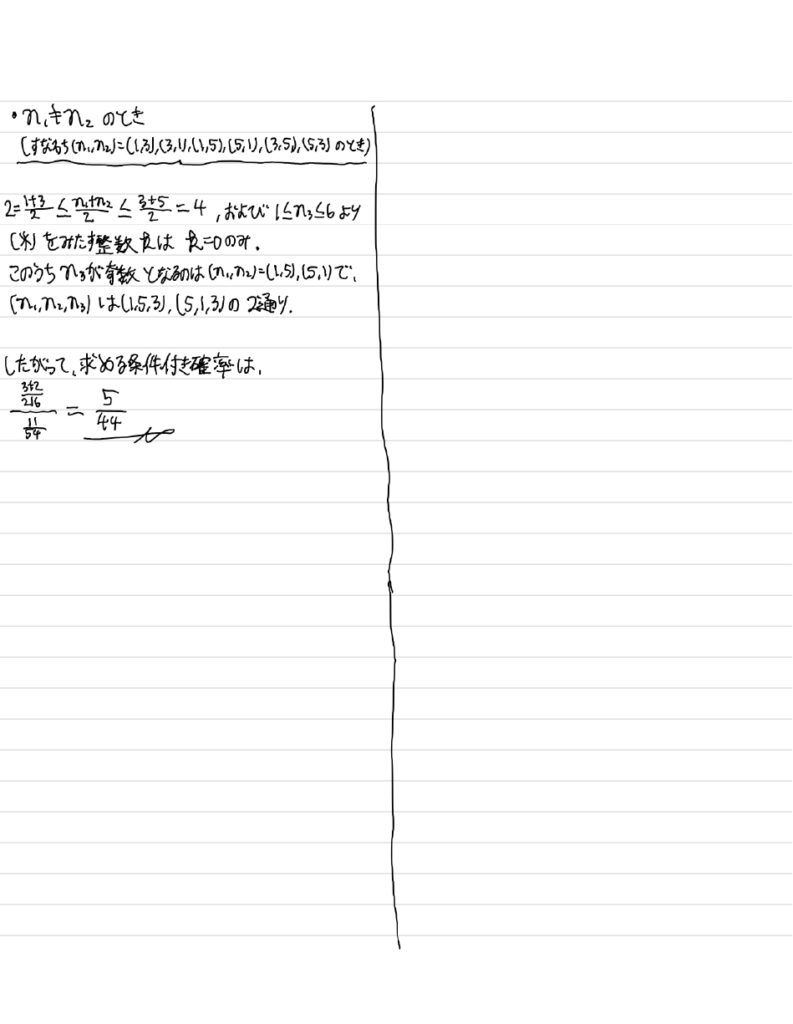 ・n₁≠n₂ のとき
(すなわち(n₁,n₂)=(1,3),(3,1),(1,5),(5,1),(3,5),(5,3) のとき)
2=\frac{1+3}{2}≦\frac{n₁+n₂}{2}≦\frac{3+5}{2}=4 ,および 1≦n₃≦6より
(※)をみたす整数kは k=0のみ.
このうちn₃が奇数となるのは(n₁,n₂)=(1,5),(5,1)で,
(n₁,n₂,n₃)は(1,5,3),(5,1,3)の2通り.
したがって,求める条件付き確率は,
\frac{\frac{3+2}{216}}{\frac{11}{54}}=\frac{5}{44}